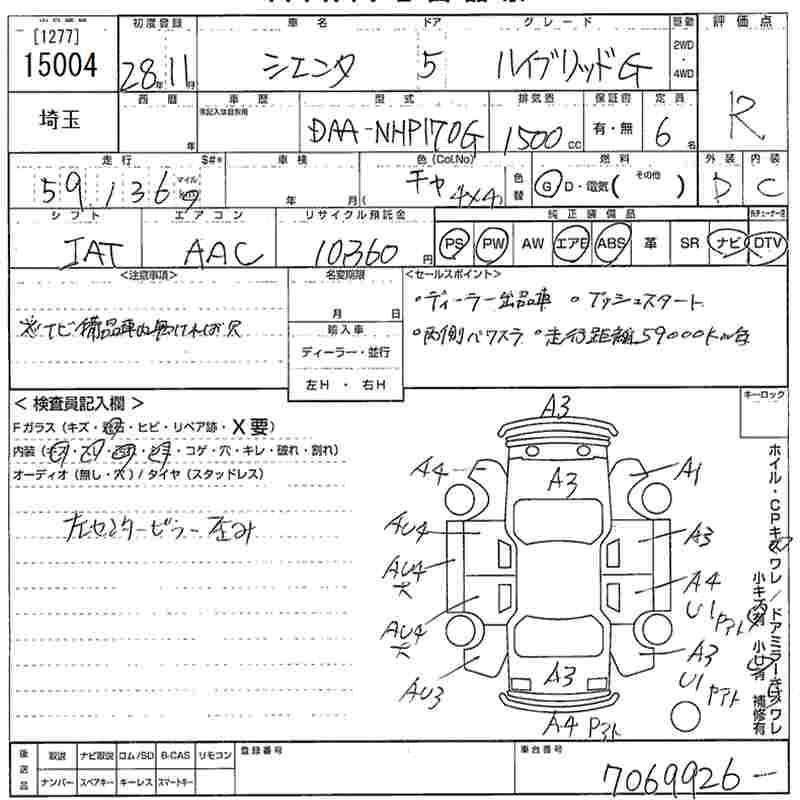 [1277]
15004
埼玉
初度登録
28年11月
車名
シエンタ
ドア
5
グレード
ハイブリッドG
駆動
2WD
・
4WD
評価点
R
西暦
年
車歴
型式
DAA-NHP170G
排気量
1500cc
保証書
有・無
定員
6名
走行
59,136
マイル
$#*
車検
年 月(
色(Col.No)
チャ 4X4)
色替
燃料
G D・電気( その他 )
外装
D
内装
C
シフト
IAT
エアコン
AAC
リサイクル預託金
10360円
純正装備品
PS PW AW エアB ABS 革 SR ナビ DTV
<注意事項>
名変期限
月 日
輸入車
ディーラー・並行
左H ・ 右H
<セールスポイント>
・ディーラー出品車 ・プッシュスタート
・両側パワスラ ・走行距離59000km台
キーロック
< 検査員記入欄 >
Fガラス(キズ・飛石・ヒビ・リペア跡・X要)
・コゲ・穴・キレ・破れ・割れ)
オーディオ(無し・穴)/タイヤ(スタッドレス)
左センターピラー歪み
A3
A4
A3
A1
AU4
A3
AU4
大
A4
U1 Pアト
AU4
大
A3
U1 Pアト
AU3
A3
A4 Pアト
ホイル・CPキズワレ/ドアミラーキズワレ
補修有
後送品
取説 ナビ取説 ロム/SD B-CAS リモコン
ナンバー スペアキー キーレス スマートキー
登録番号
車台番号
7069926-